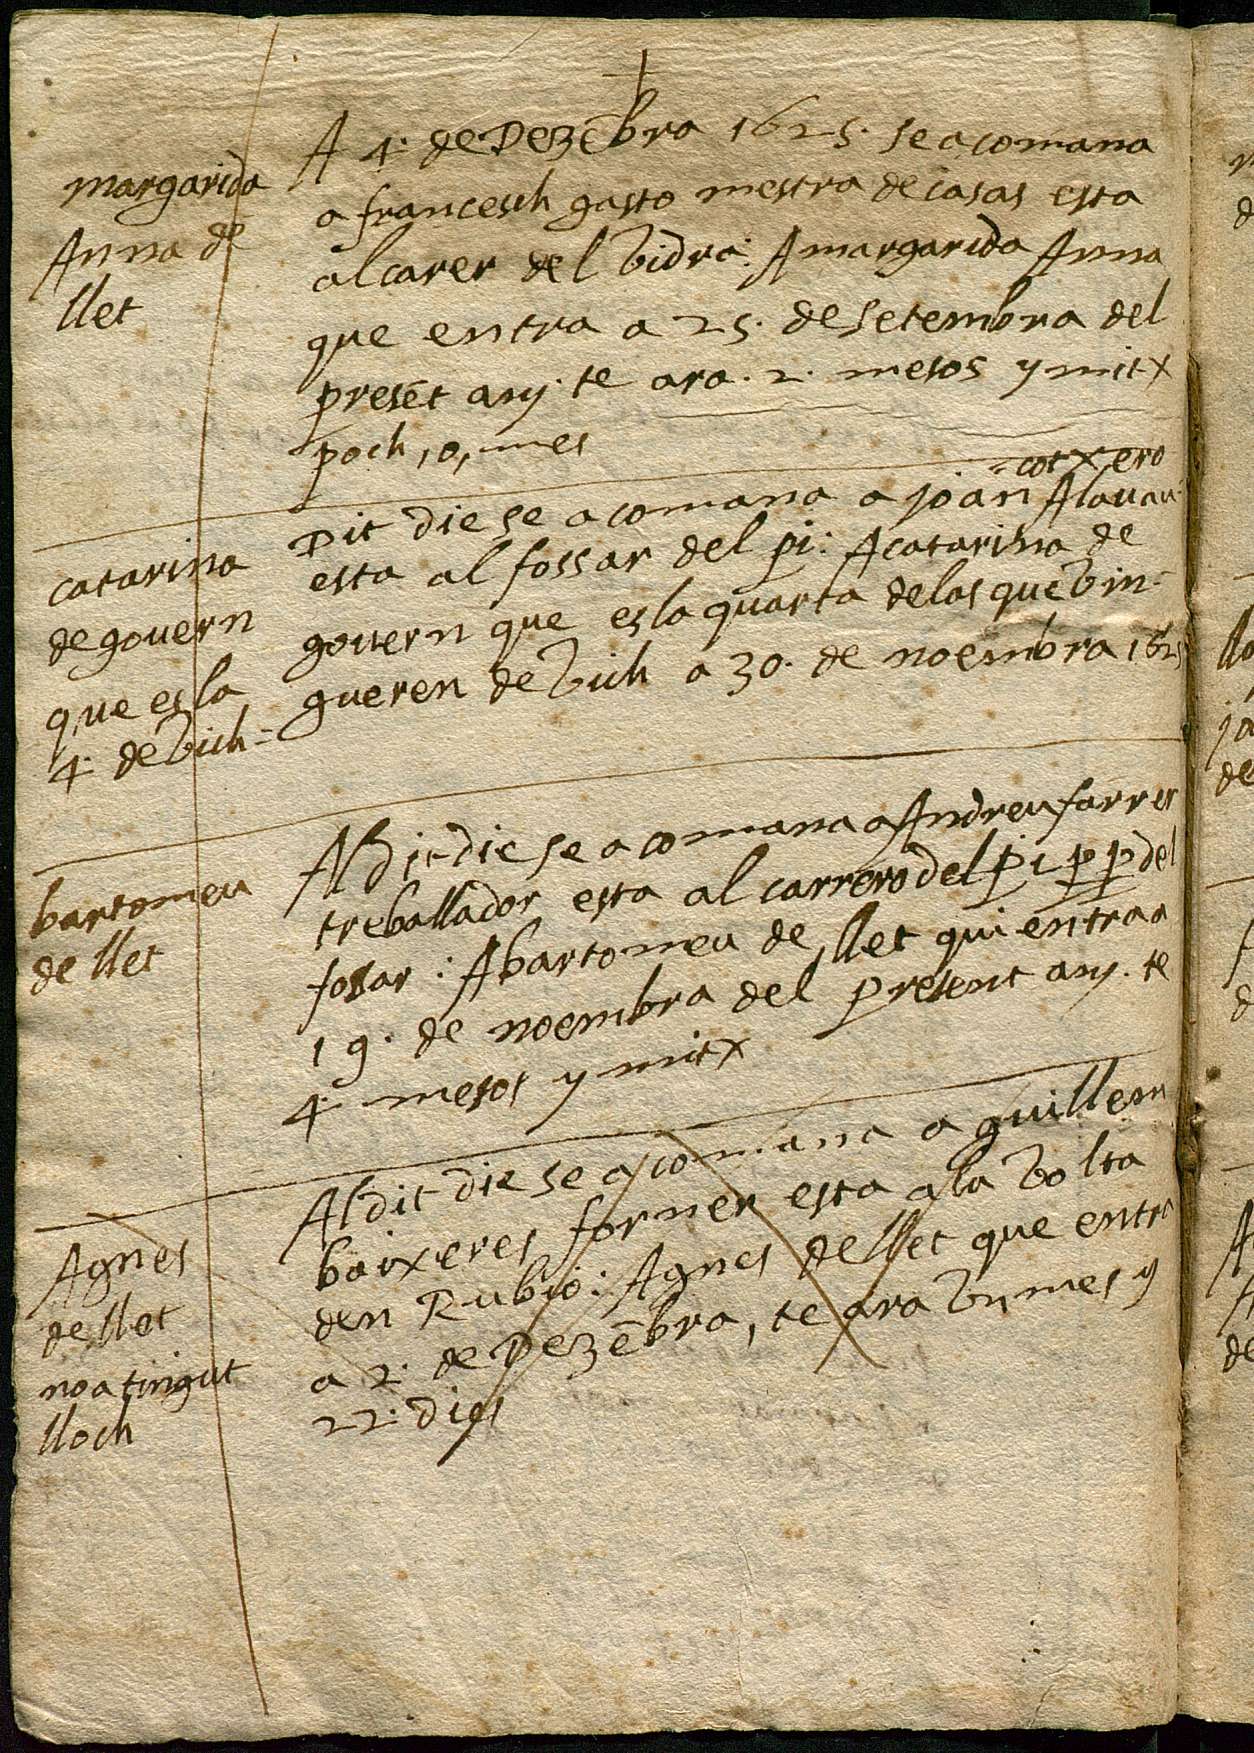 margarida
Anna de
llet
A 4. de Dezēbra 1625. se acomana
a francesch gasto mestra de casas esta
al carer del Vidra: A margarida Anna
que entra a 25. de Setembra del
presēt any. te ara. 2. mesos y mitx
poch, o, mes
catarina
de govern
que es la
4. de Vich=
cotxero
Dit die se acomana a joan Alavau
esta al fossar del pi: A catarina de
govern que es la quarta de las que Vin=
gueren de Vich a 30. de noembra 1625
bartomeu
de llet
Al dit die se acomana a Andreu farrer
treballador esta al carrero del pi p p del
fossar: A bartomeu de llet qui entra a
19. de noembra del present any. te
4. mesos y mitx
Agnes
de llet
no a tingut
lloch
Al dit die se acomana a guillem
baixeres forner esta a la Volta
den Rubio: Agnes de llet que entra
a 2. de Dezēbra, te ara Vn mes y
22. dies